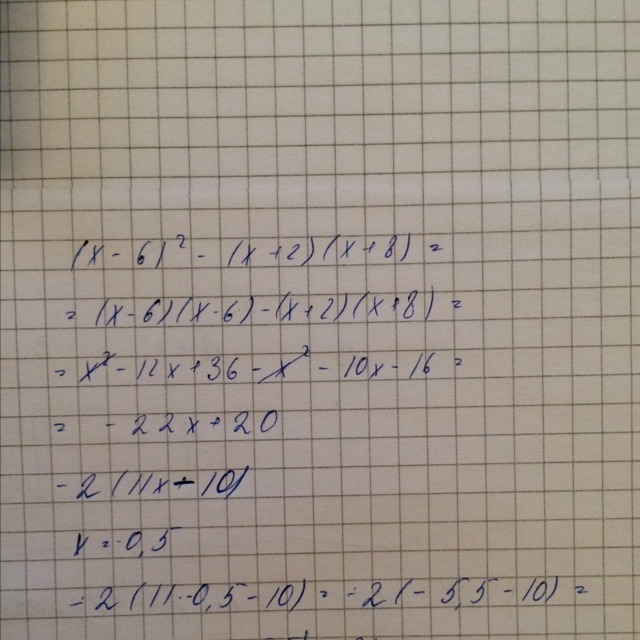 (x - 6)² - (x + 2)(x + 8) =
= (x - 6)(x - 6) - (x + 2)(x + 8) =
= x² - 12x + 36 - x² - 10x - 16 =
= - 22x + 20
-2 (11x - 10)
x = -0,5
-2 (11·-0,5 - 10) = -2 (- 5,5 - 10) =